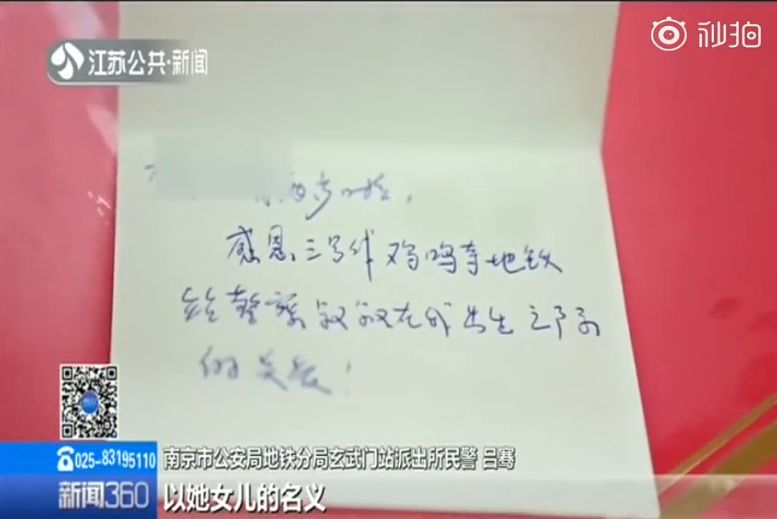 江苏公共·新闻
秒拍
两岁啦，
感恩三号线鸡鸣寺地铁
站警察叔叔在我出生之际
的关照！
025-83195110
南京市公安局地铁分局玄武门站派出所民警 吕骞
新闻360
以她女儿的名义